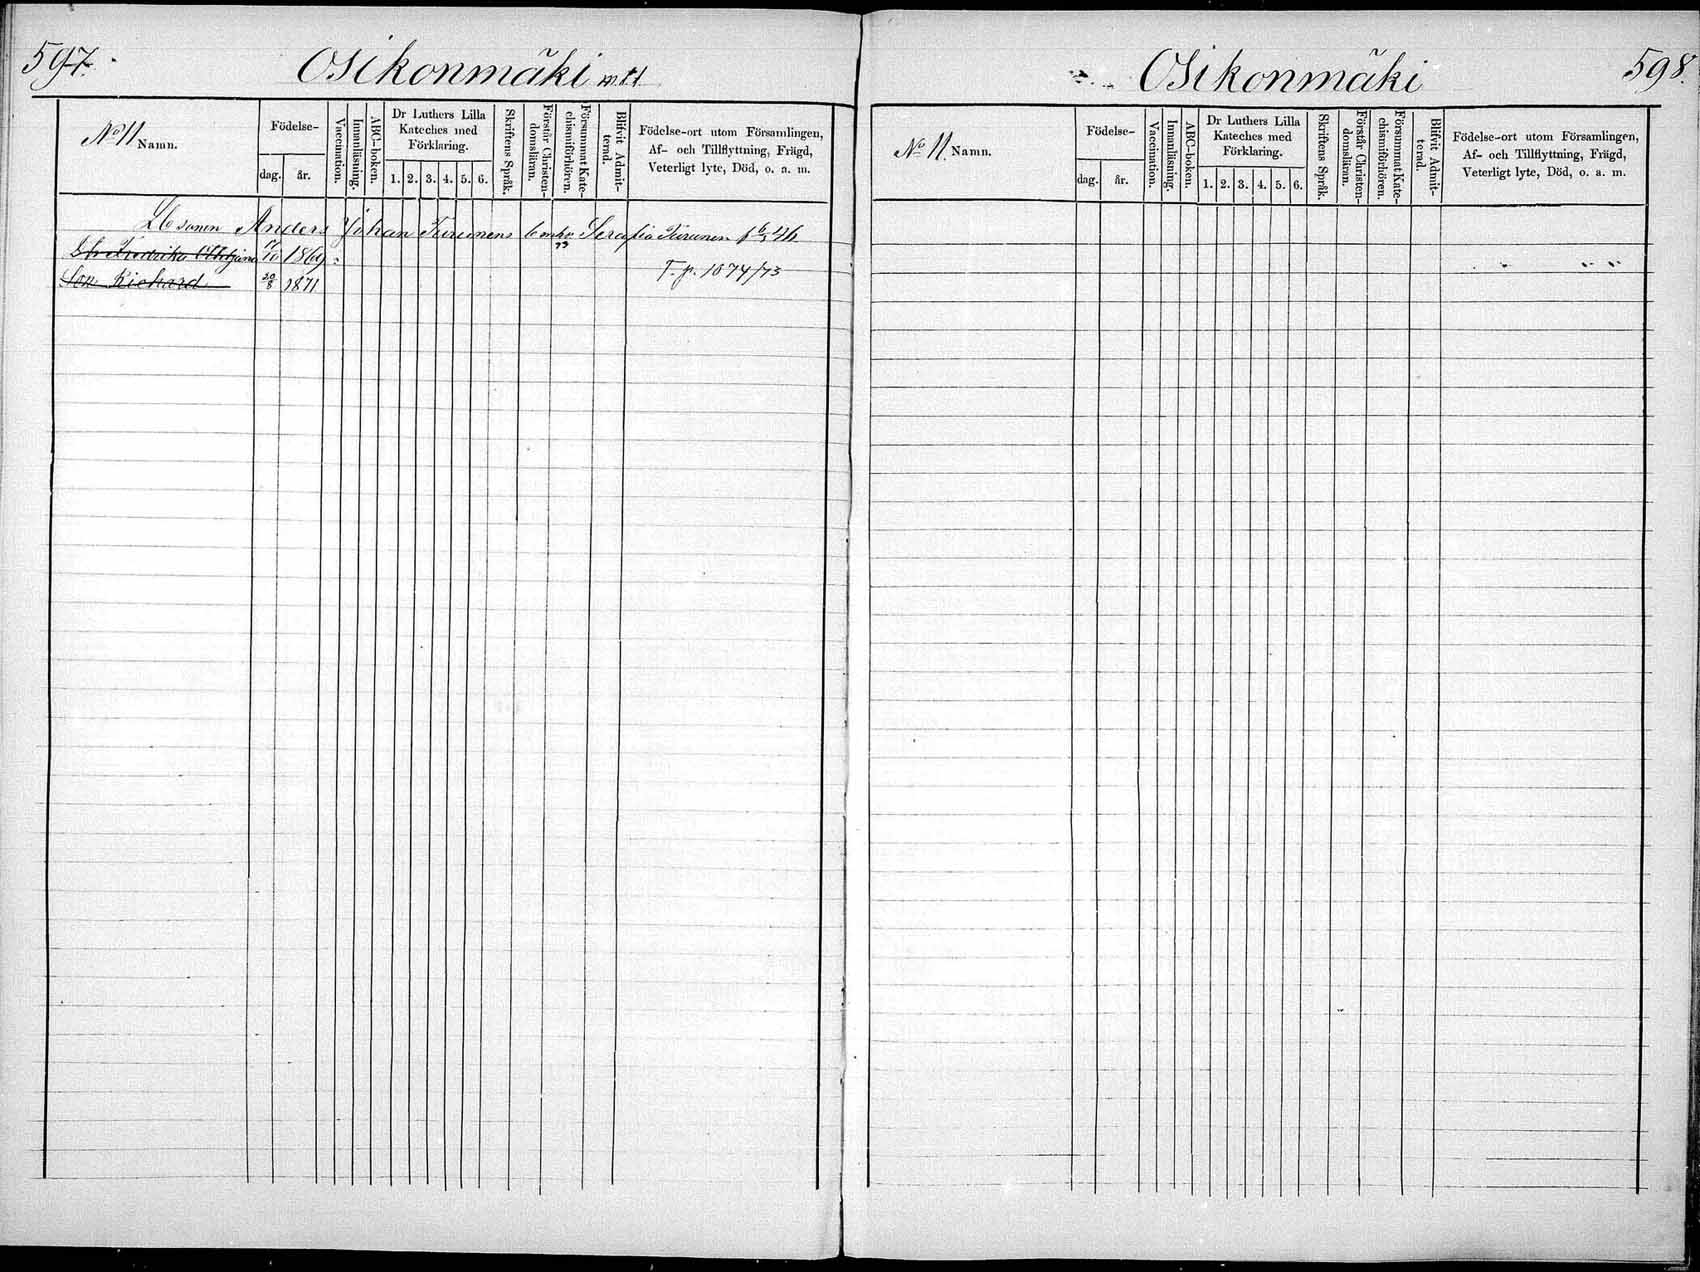 597.
Osikonmäki
No 11 Namn.
Födelse-
dag.
år.
Vaccination.
Innanläsning.
ABC-boken.
Dr Luthers Lilla
Kateches med
Förklaring.
1. 2. 3. 4. 5. 6.
Skriftens Språk.
Förstår Christen-
domsläran.
Försummat Kate-
chismiförhören.
Blifvit Admit-
terad.
Födelse-ort utom Församlingen,
Af- och Tillflyttning, Frägd,
Veterligt lyte, Död, o. a. m.
sonen Anders Johan Tiirunens Serafia Tiirunen
1869
T. p. 1074/73
Son Richard 29/8 1871
Osikonmäki
598.
No 11. Namn.
Födelse-
dag.
år.
Vaccination.
Innanläsning.
ABC-boken.
Dr Luthers Lilla
Kateches med
Förklaring.
1. 2. 3. 4. 5. 6.
Skriftens Språk.
Förstår Christen-
domsläran.
Försummat Kate-
chismiförhören.
Blifvit Admit-
terad.
Födelse-ort utom Församlingen,
Af- och Tillflyttning, Frägd,
Veterligt lyte, Död, o. a. m.